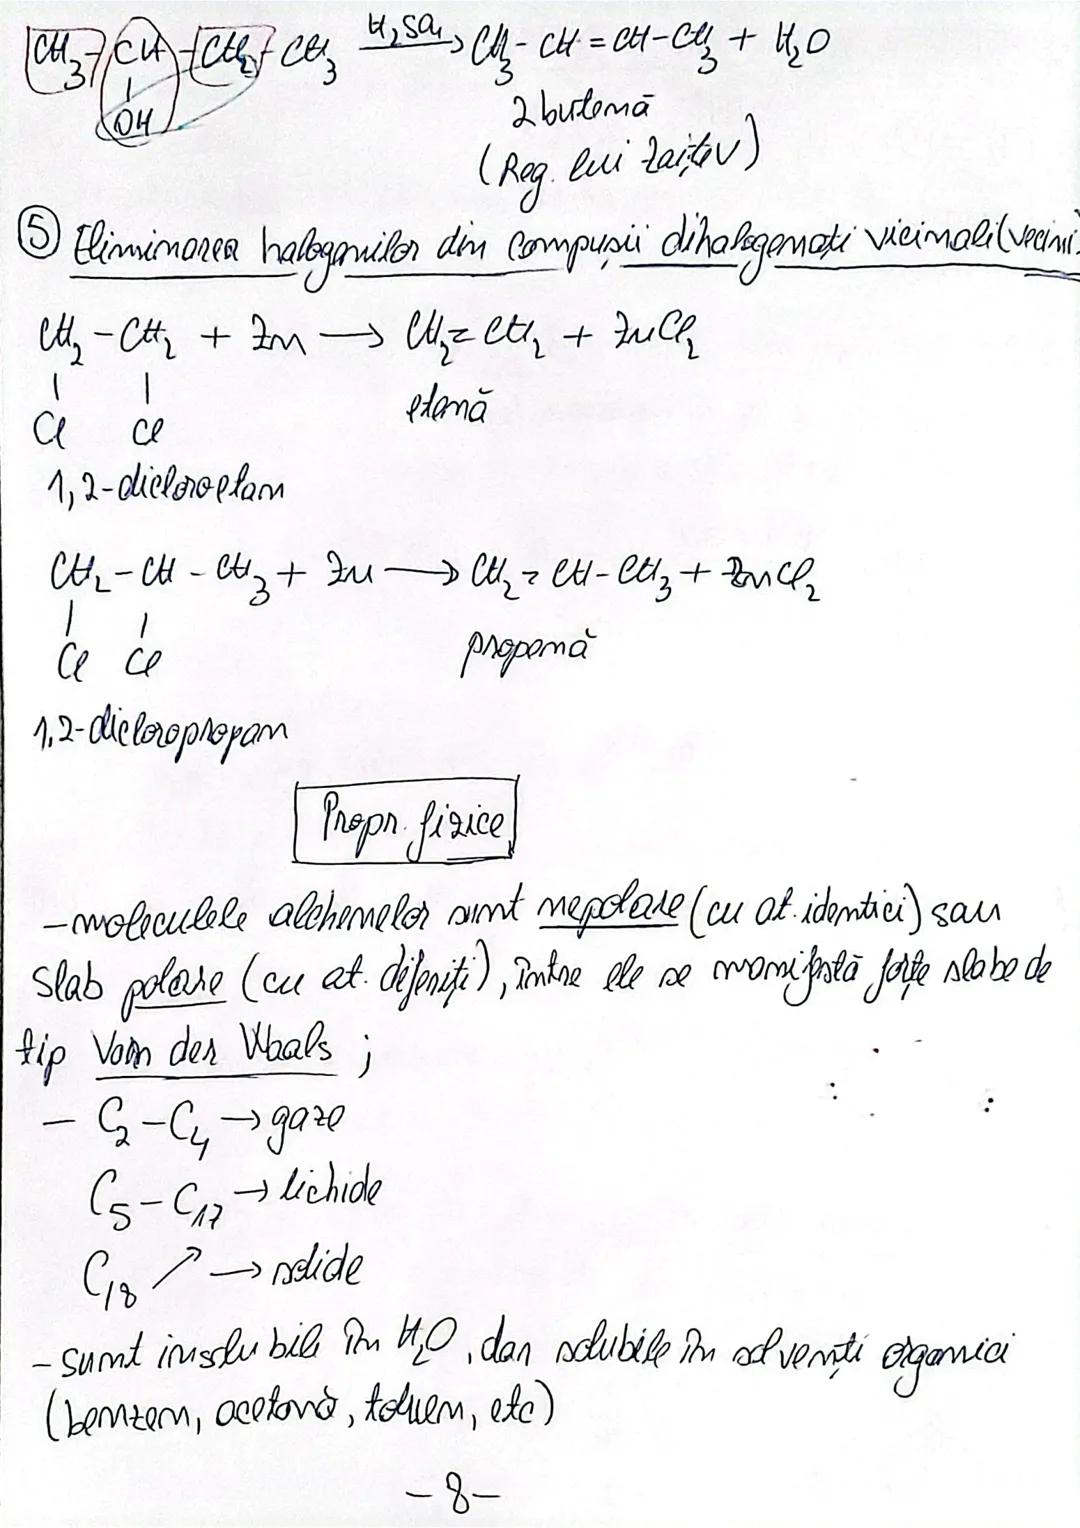 CH₃-CH-CH₂-CH₃ H₂SO₄→ CH₃-CH=CH-CH₃ + H₂O
OH
2 butenă
(Reg. lui Zaițev)
⑤ Eliminarea halogenilor din compușii dihalogenați vicinali (vecini)
CH₂-CH₂ + Zn → CH₂=CH₂ + ZnCl₂
Cl Cl
etenă
1,2-dicloroetan
CH₂-CH-CH₃ + Zn → CH₂=CH-CH₃ + ZnCl₂
Cl Cl
propenă
1,2-dicloropropan
Propr. fizice
-moleculele alchenelor sunt nepolare (cu at. identici) sau
slab polare (cu at. diferiți), între ele se manifestă forțe slabe de
tip Van der Waals ;
- C₂-C₄ → gaze
C₅-C₁₇ → lichide
C₁₈ ↗ → solide
-sunt insolubile în H₂O, dar solubile în solvenți organici
(benzen, acetonă, toluen, etc)
-8-